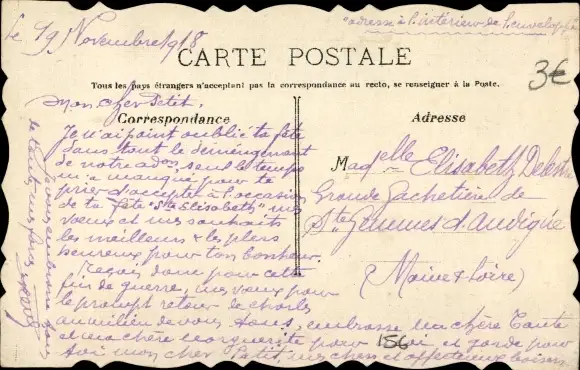 le 19 Novembre 1918
"adresse à l'intérieur de l'enveloppe
CARTE POSTALE
Tous les pays étrangers n'acceptant pas la correspondance au recto, se renseigner à la Poste.
3€
Mon cher Petit,
Correspondance
Adresse
Je n'ai point oublié ta fête
dans tout le déménagement
de notre adon, seul le temps
m'a manqué pour te
prier d'accepter à l'occasion
de ta fête "Ste Elisabeth" mes
vœux et mes souhaits
les meilleurs & les plus
heureux pour ton bonheur.
Reçois donc pour cette
fin de guerre, mes vœux pour
le prompt retour de Charles
au milieu de vous tous, embrasse ma chère Tante
et ma chère Marguerite pour moi et garde pour
toi mon cher Petit, mes chers et affectueux baisers
Madelle Elisabeth
Grande
de
Ste Gemmes d'Andigné
(Maine & Loire)
156
je vous embrasse tous
de toutes mes forces